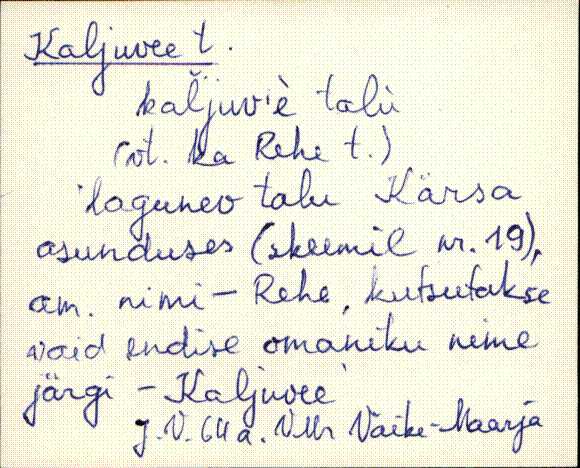 Kaljuvee t.
kal̆juv'è talù
(vt. ka Rehe t.)
lagunev talu Kärsa
asunduses (skeemil nr. 19),
am. nimi – Rehe, kutsutakse
vaid endise omaniku nime
järgi – Kaljuvee
J. V. 64 a. VMr Väike-Maarja